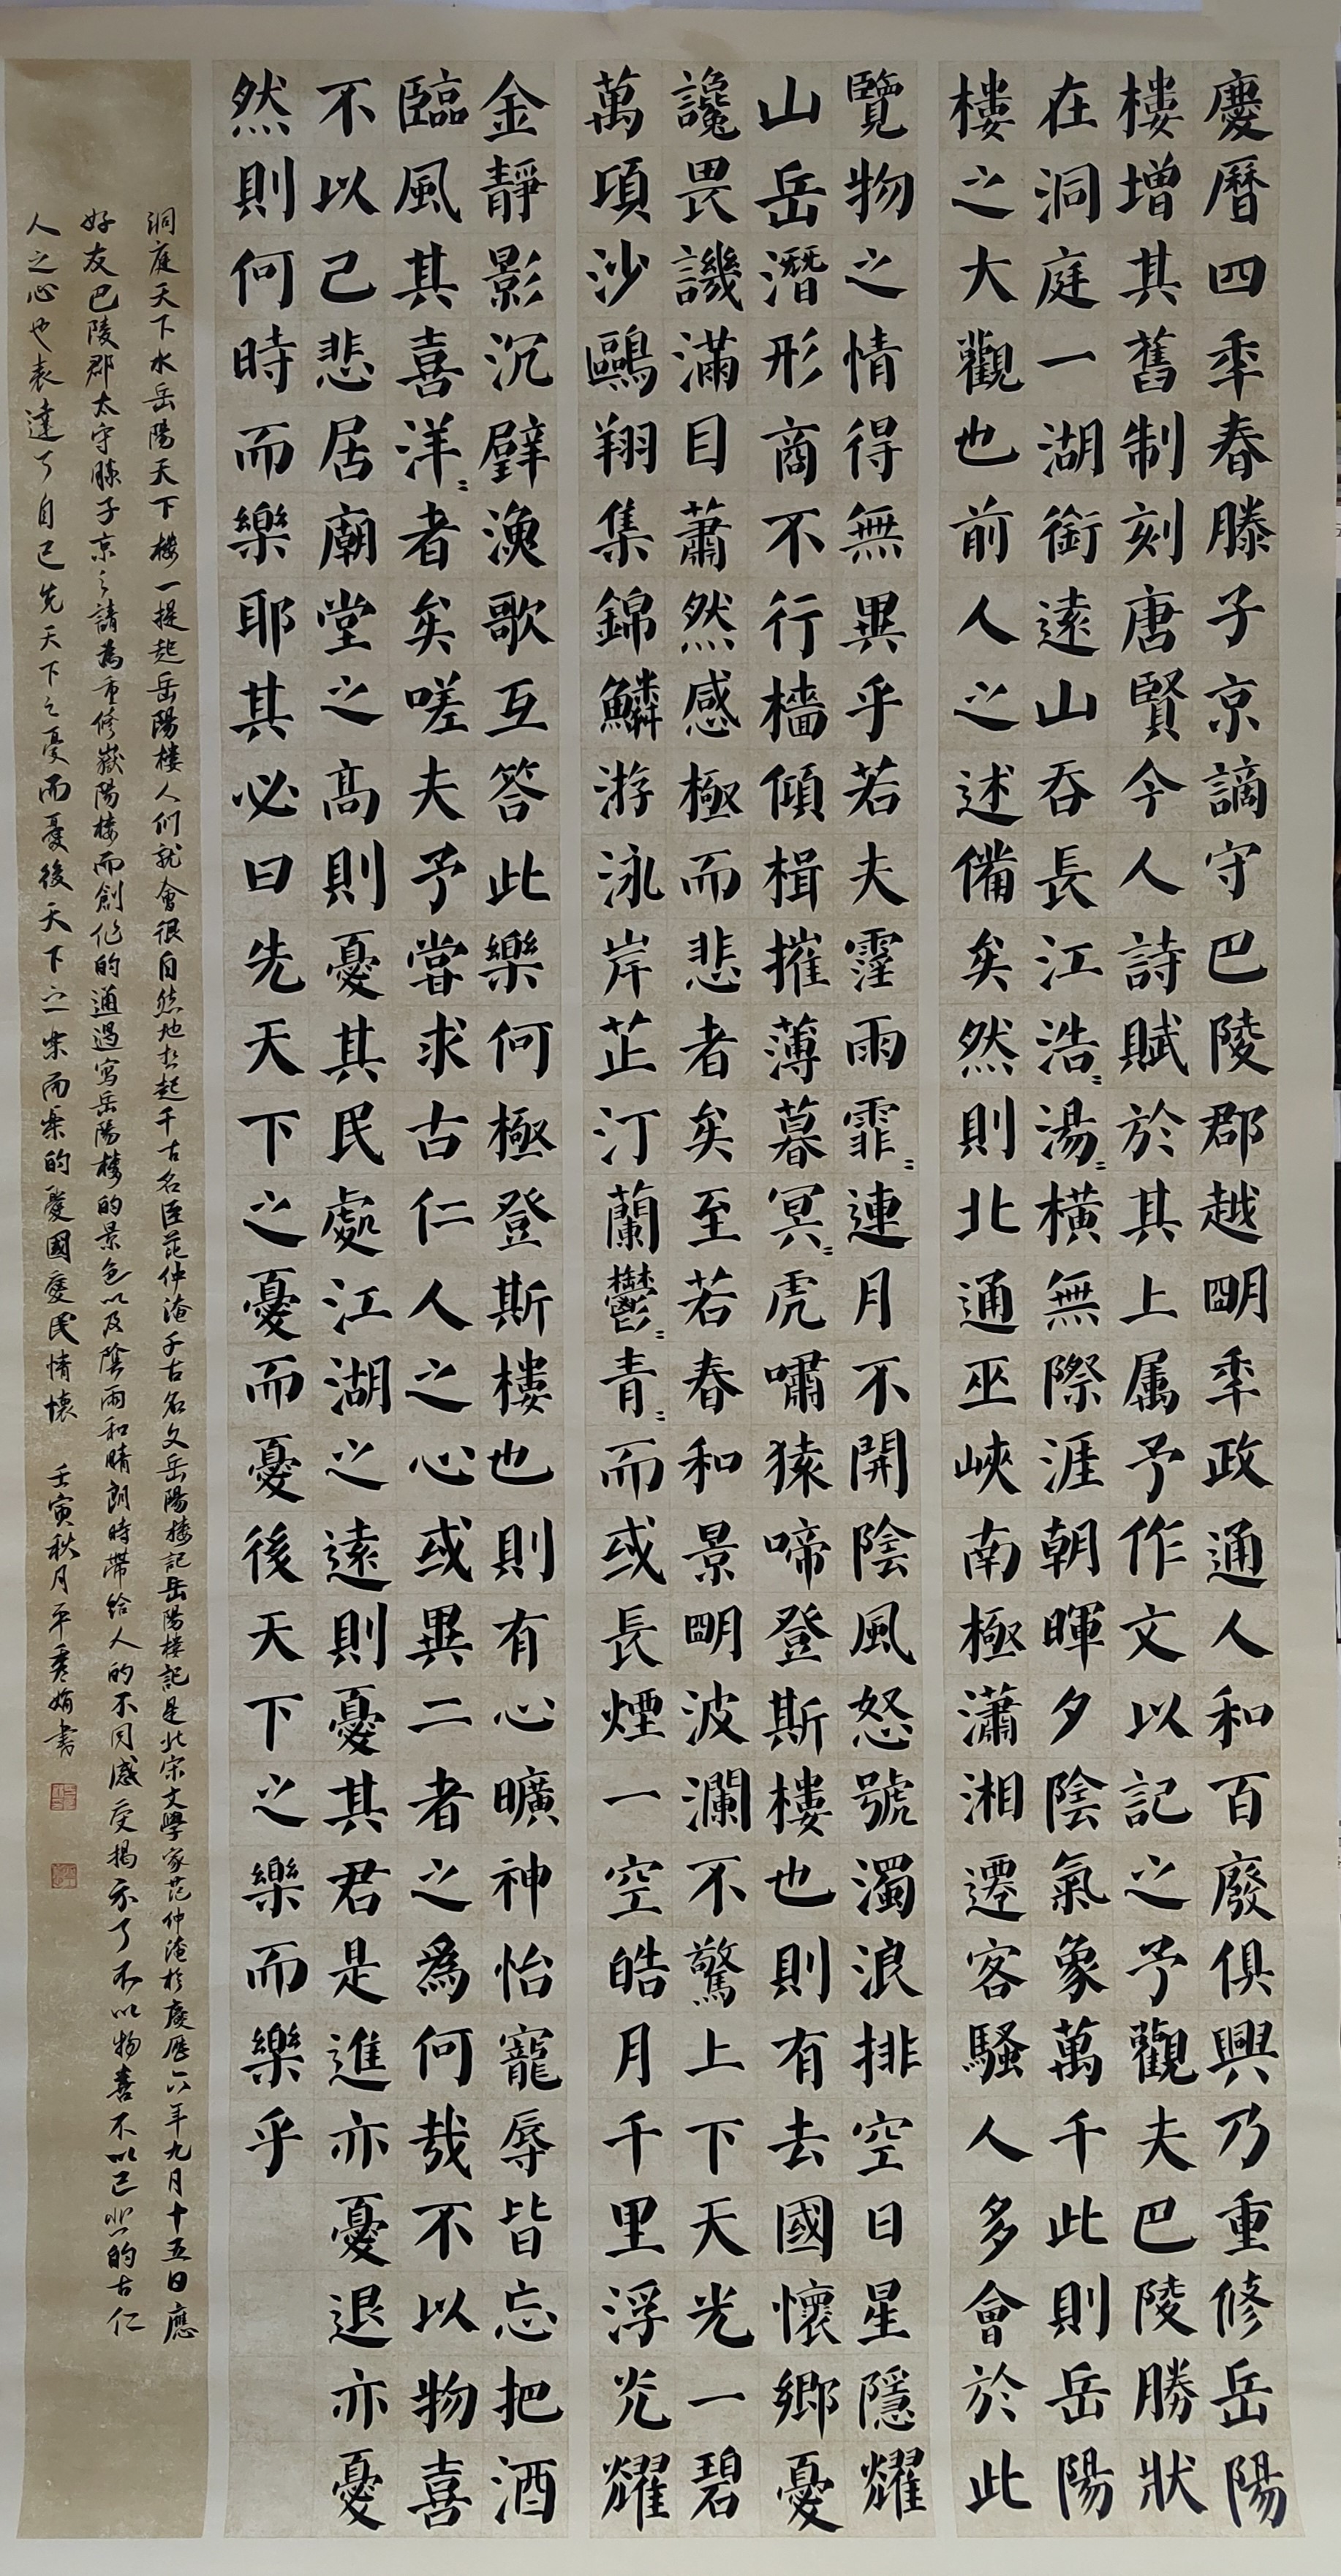 慶曆四秊春滕子京謫守巴陵郡越朙秊政通人和百廢俱興乃重修岳陽
樓增其舊制刻唐賢今人詩賦於其上属予作文以記之予觀夫巴陵勝狀
在洞庭一湖銜遠山吞長江浩〻湯〻橫無際涯朝暉夕陰氣象萬千此則岳陽
樓之大觀也前人之述備矣然則北通巫峽南極瀟湘遷客騷人多會於此
覽物之情得無異乎若夫霪雨霏〻連月不開陰風怒號濁浪排空日星隱耀
山岳潛形商不行檣傾楫摧薄暮冥〻虎嘯猿啼登斯樓也則有去國懷鄉憂
讒畏譏滿目蕭然感極而悲者矣至若春和景朙波瀾不驚上下天光一碧
萬頃沙鷗翔集錦鱗游泳岸芷汀蘭鬱〻青〻而或長煙一空皓月千里浮光耀
金靜影沉璧漁歌互答此樂何極登斯樓也則有心曠神怡寵辱皆忘把酒
臨風其喜洋〻者矣嗟夫予嘗求古仁人之心或異二者之為何哉不以物喜
不以己悲居廟堂之高則憂其民處江湖之遠則憂其君是進亦憂退亦憂
然則何時而樂耶其必曰先天下之憂而憂後天下之樂而樂乎
洞庭天下水岳陽天下樓一提起岳陽樓人们就會很自然地想起千古名臣范仲淹千古名文岳陽樓記岳陽樓記是北宋文學家范仲淹於慶曆六年九月十五日應
好友巴陵郡太守滕子京之請為重修嶽陽樓而創作的通過寫岳陽樓的景色以及陰雨和晴朗時帶给人的不同感受揭示了不以物喜不以己悲的古仁
人之心也表達了自己先天下之憂而憂後天下之樂而樂的愛國愛民情懷 壬寅秋月平秀娟書